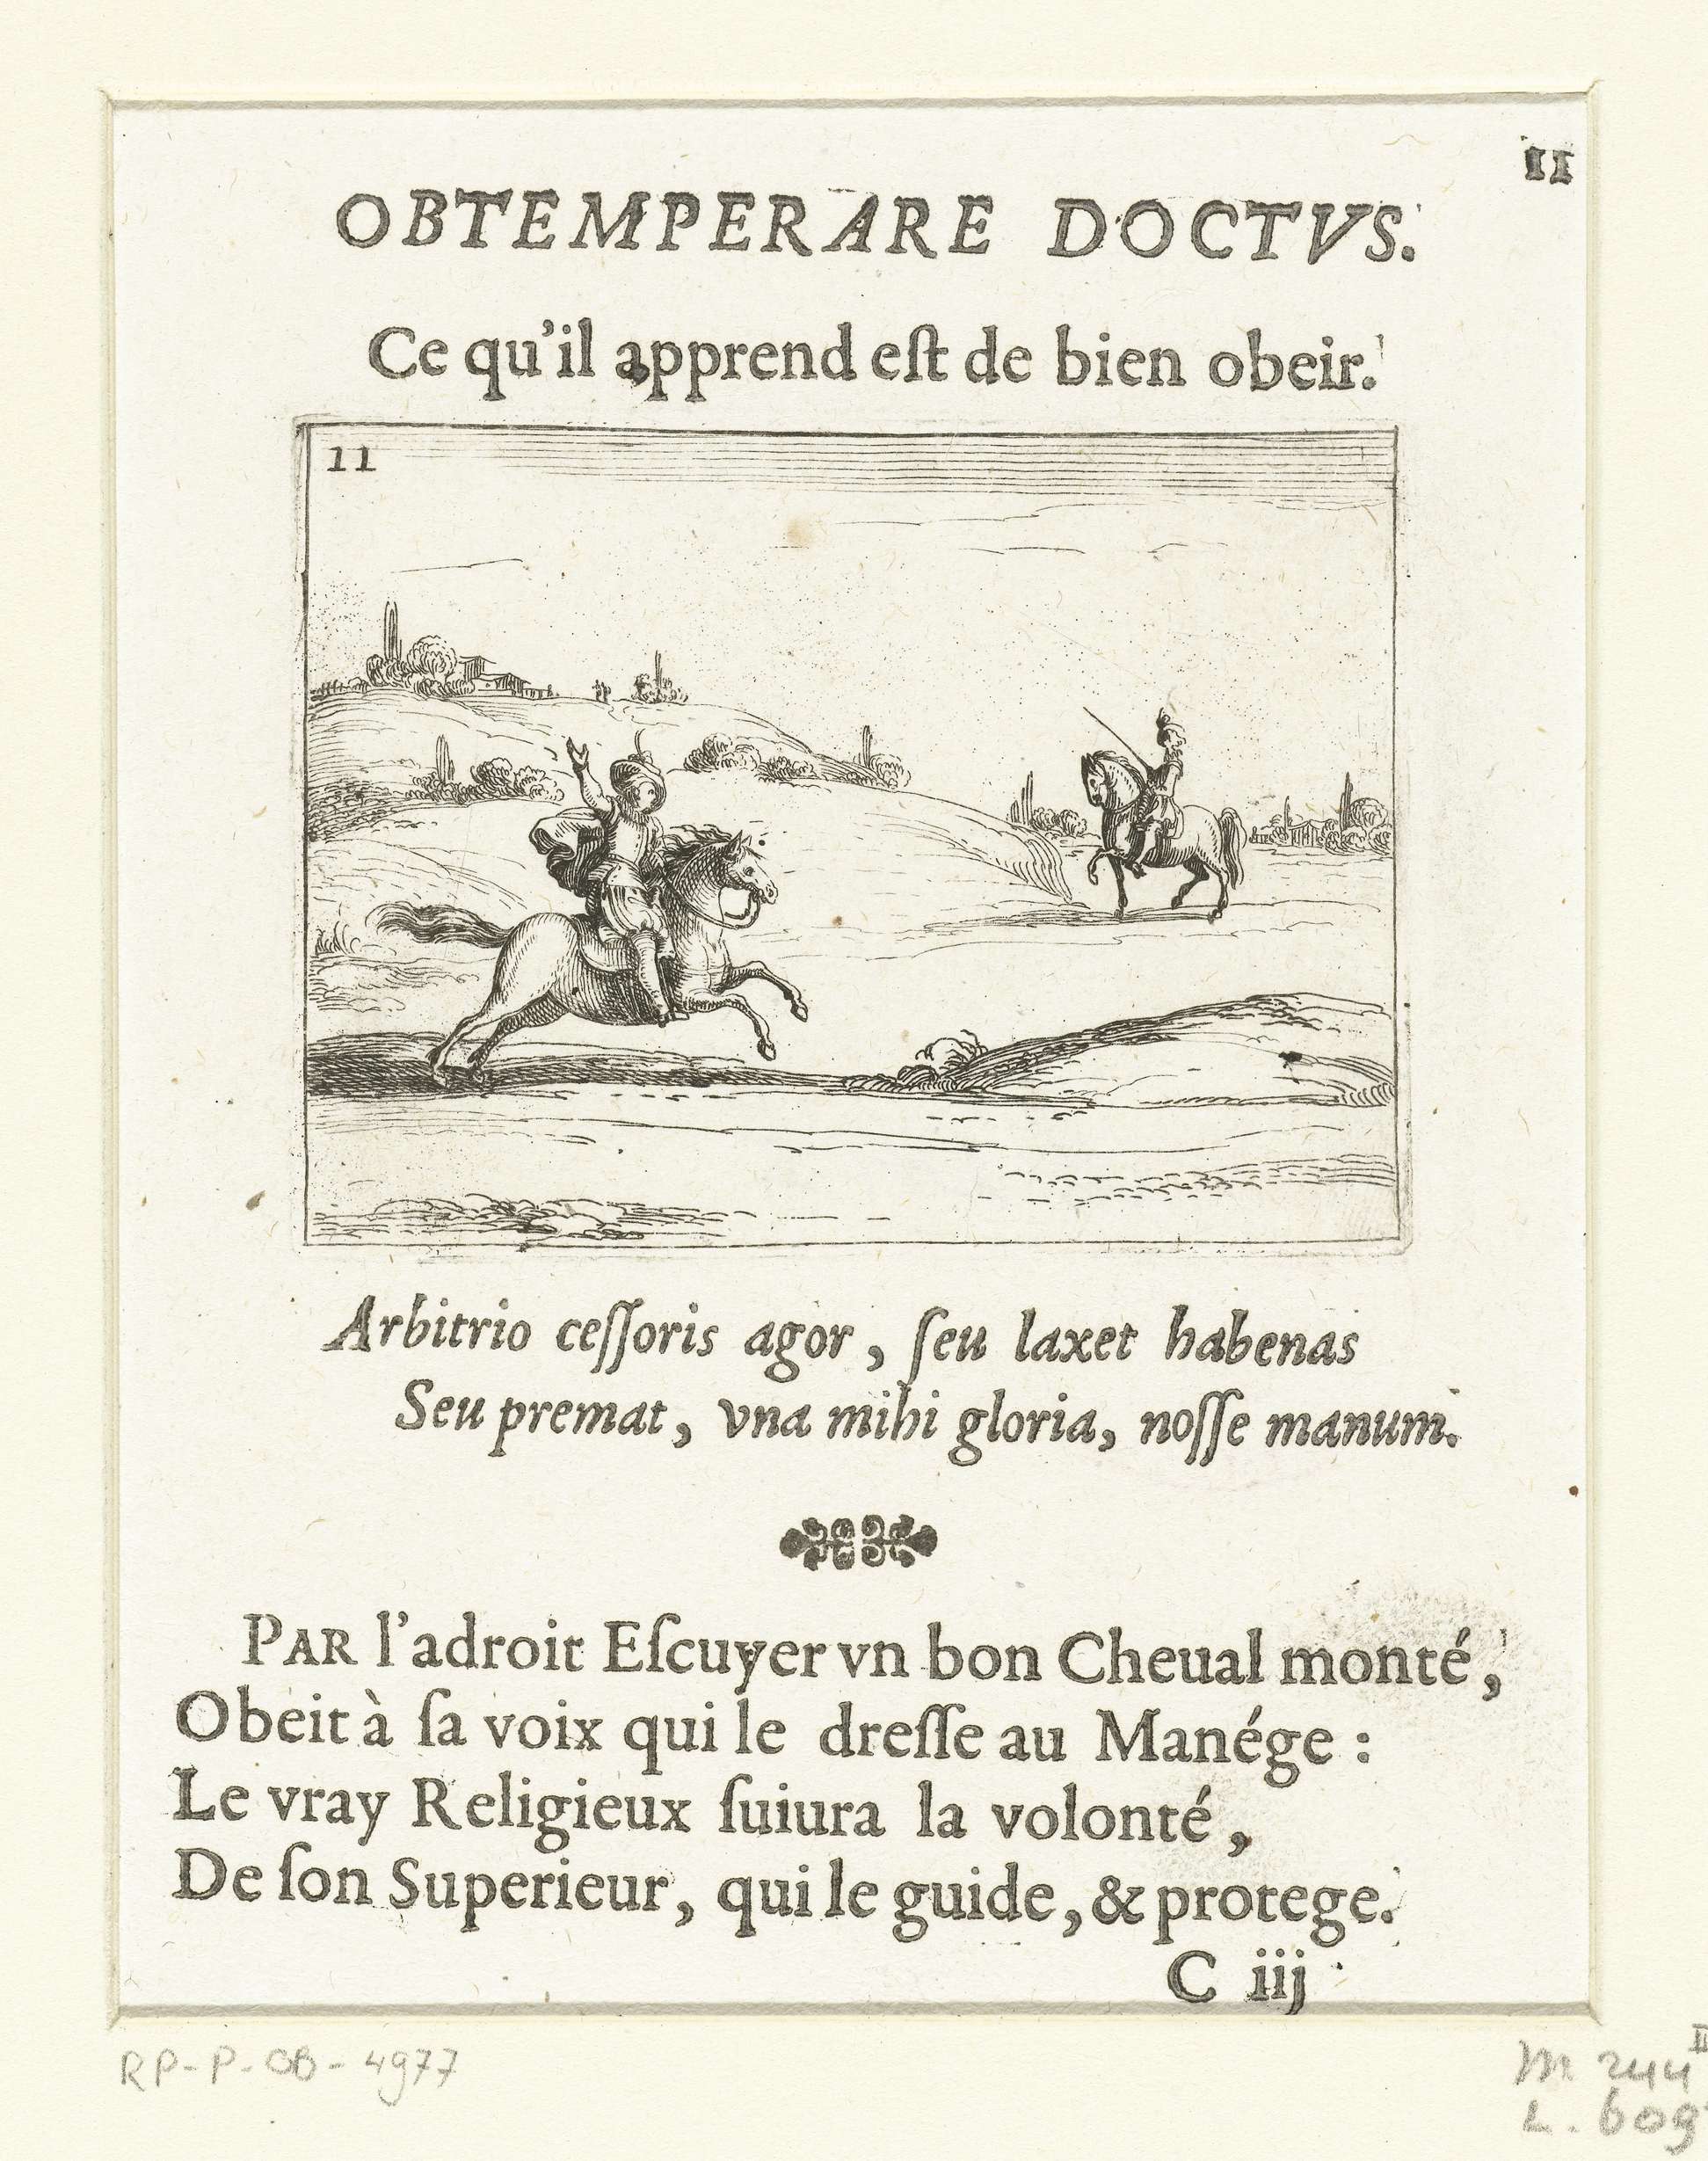 11
OBTEMPERARE DOCTVS.
Ce qu'il apprend eſt de bien obeir.
11
Arbitrio ceſſoris agor, ſeu laxet habenas
Seu premat, vna mihi gloria, noſſe manum.
PAR l'adroit Eſcuyer vn bon Cheual monté,
Obeit à ſa voix qui le dreſſe au Manége :
Le vray Religieux ſuiura la volonté,
De ſon Superieur, qui le guide, & protege.
C iij
RP-P-OB-4977
M 244 II
L. 609